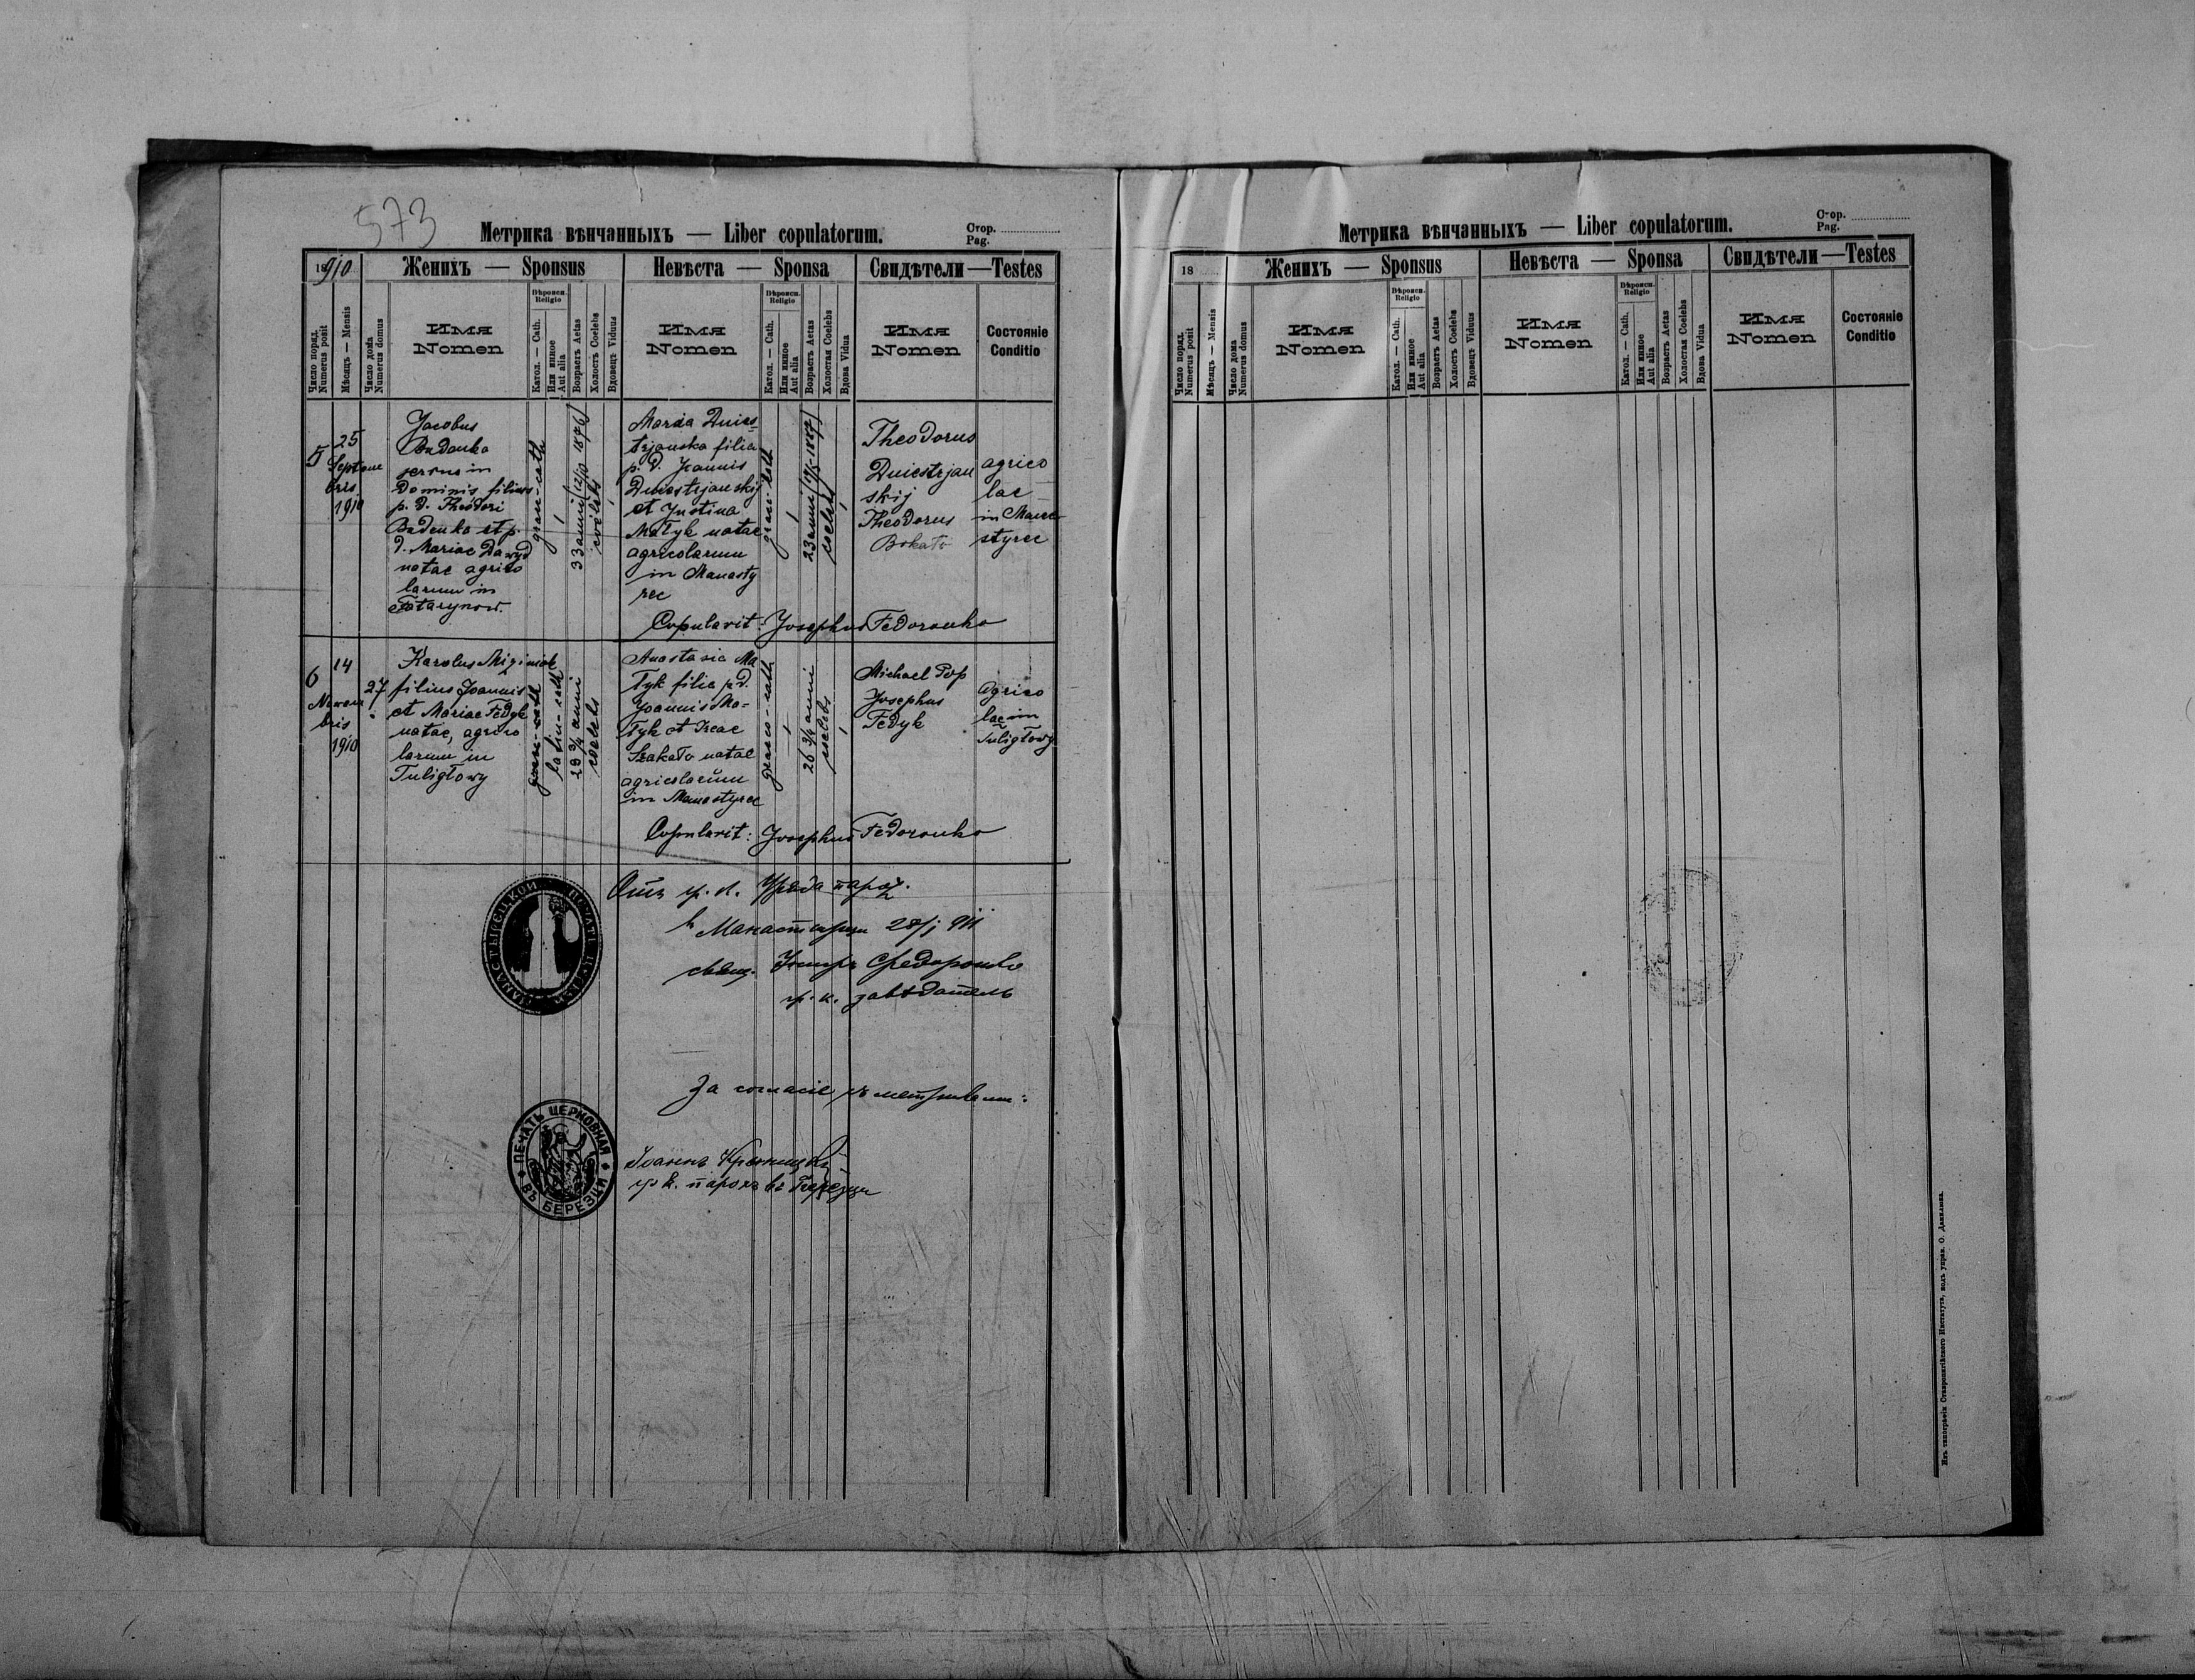 573
Метрика вѣнчанныхъ — Liber copulatorum.
Стор.
Pag.
1910
Женихъ — Sponsus
Невѣста — Sponsa
Свидѣтели — Testes
Число поряд.
Numerus posit
Мѣсяцъ — Mensis
Число дома
Numerus domus
Имя
Nomen
Вѣроисп.
Religio
Катол. — Cath.
Или инное
Aut alia
Возрастъ Aetas
Холостъ Coelebs
Вдовецъ Viduus
Имя
Nomen
Вѣроисп.
Religio
Катол. — Cath.
Или инное
Aut alia
Возрастъ Aetas
Холостая Coelebs
Вдова Vidua
Имя
Nomen
Состояніе
Conditio
5
25
Septem
bris
1910
Jacobus
Badenko
in
Dominis filius
p. d. Theodori
Badenko et p.
d. Mariae Dawyd
natae agrico
larum in
Tatarynow.
graec-cath
33 anni (12/10 1876)
coelebs
Maria Dnies
trjanska filia
p. d. Joannis
Dniestrjanskij
et Justina
Matyk natae
agricolarum
in Manasty
rec
graec-cath
23 anni
coelebs
Theodorus
Dniestrjan
skij
Theodorus
agrico
lae
in Mana
styrec
Copulavit: Josephus Fedoronko
6
14
Novem
bris
1910
27
Karolus
filius Joannis
et Mariae Fedyk
natae, agrico
larum in
Tuligłowy
latin-cath
28 3/4 anni
coelebs
Anastasia Ma
tyk filia p. d.
Joannis Ma-
tyk et
natae
agricolarum
in Manastyrec
graeco-cath
26 3/4 anni
coelebs
Michael Pop
Josephus
Fedyk
agrico
lae in
Tuligłowy
Copulavit: Josephus Fedoronko
Отъ гр. к. Уряда парох.
въ Манастырци 28/1 911
свящ. Іосифъ Федоронко
гр. к. завѣдатель
За согласіе съ метриками:
ПЕЧАТЬ ЦЕРКОВНАЯ
ВЪ БЕРЕЗЦИ
Іоаннъ
гр к. парохъ въ Березци
Метрика вѣнчанныхъ — Liber copulatorum.
Стор.
Pag.
18
Женихъ — Sponsus
Невѣста — Sponsa
Свидѣтели — Testes
Число поряд.
Numerus posit
Мѣсяцъ — Mensis
Число дома
Numerus domus
Имя
Nomen
Вѣроисп.
Religio
Катол. — Cath.
Или инное
Aut alia
Возрастъ Aetas
Холостъ Coelebs
Вдовецъ Viduus
Имя
Nomen
Вѣроисп.
Religio
Катол. — Cath.
Или инное
Aut alia
Возрастъ Aetas
Холостая Coelebs
Вдова Vidua
Имя
Nomen
Состояніе
Conditio
Изъ типографіи Ставропигійского Института, подъ управ. О. Данилюка.